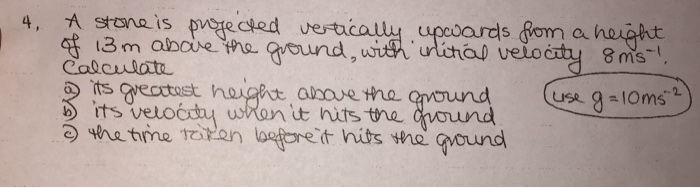 4, A stone is projected vertically upwards from a height
of 13m above the ground, with initial velocity 8ms⁻¹.
Calculate
a) its greatest height above the ground
b) its velocity when it hits the ground
c) the time taken before it hits the ground
(use g = 10ms⁻²)